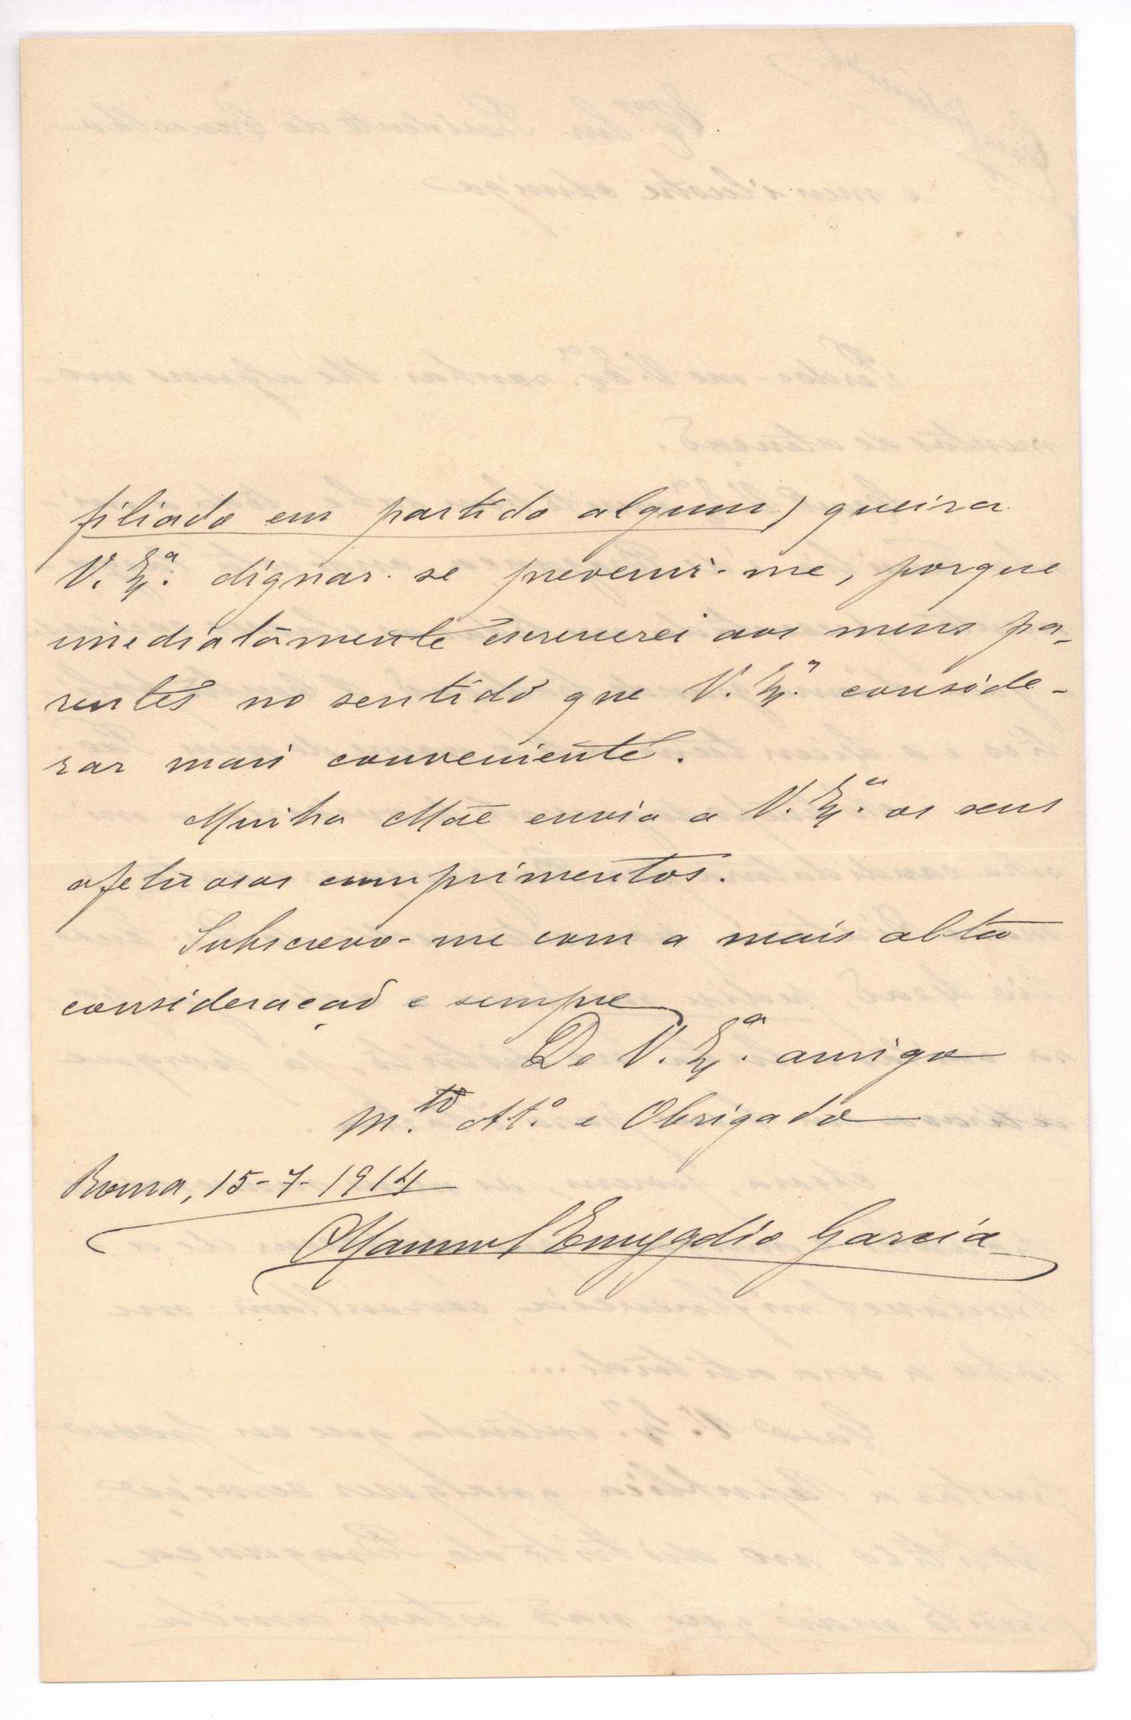 filiado em partido algum) queira
V. Ex.ª dignar-se prevenir-me, porque
imediatâmente escreverei aos meus pa-
rentes no sentido que V. Ex.ª conside-
rar mais conveniente.
Minha Mãe envia a V. Ex.ª os seus
afetuosos comprimentos.
Subscrevo-me com a mais alta
consideração e sempre
De V. Ex.ª amigo
M.to At.º e Obrigado
Roma, 15-7-1914
Manuel Emygdio Garcia